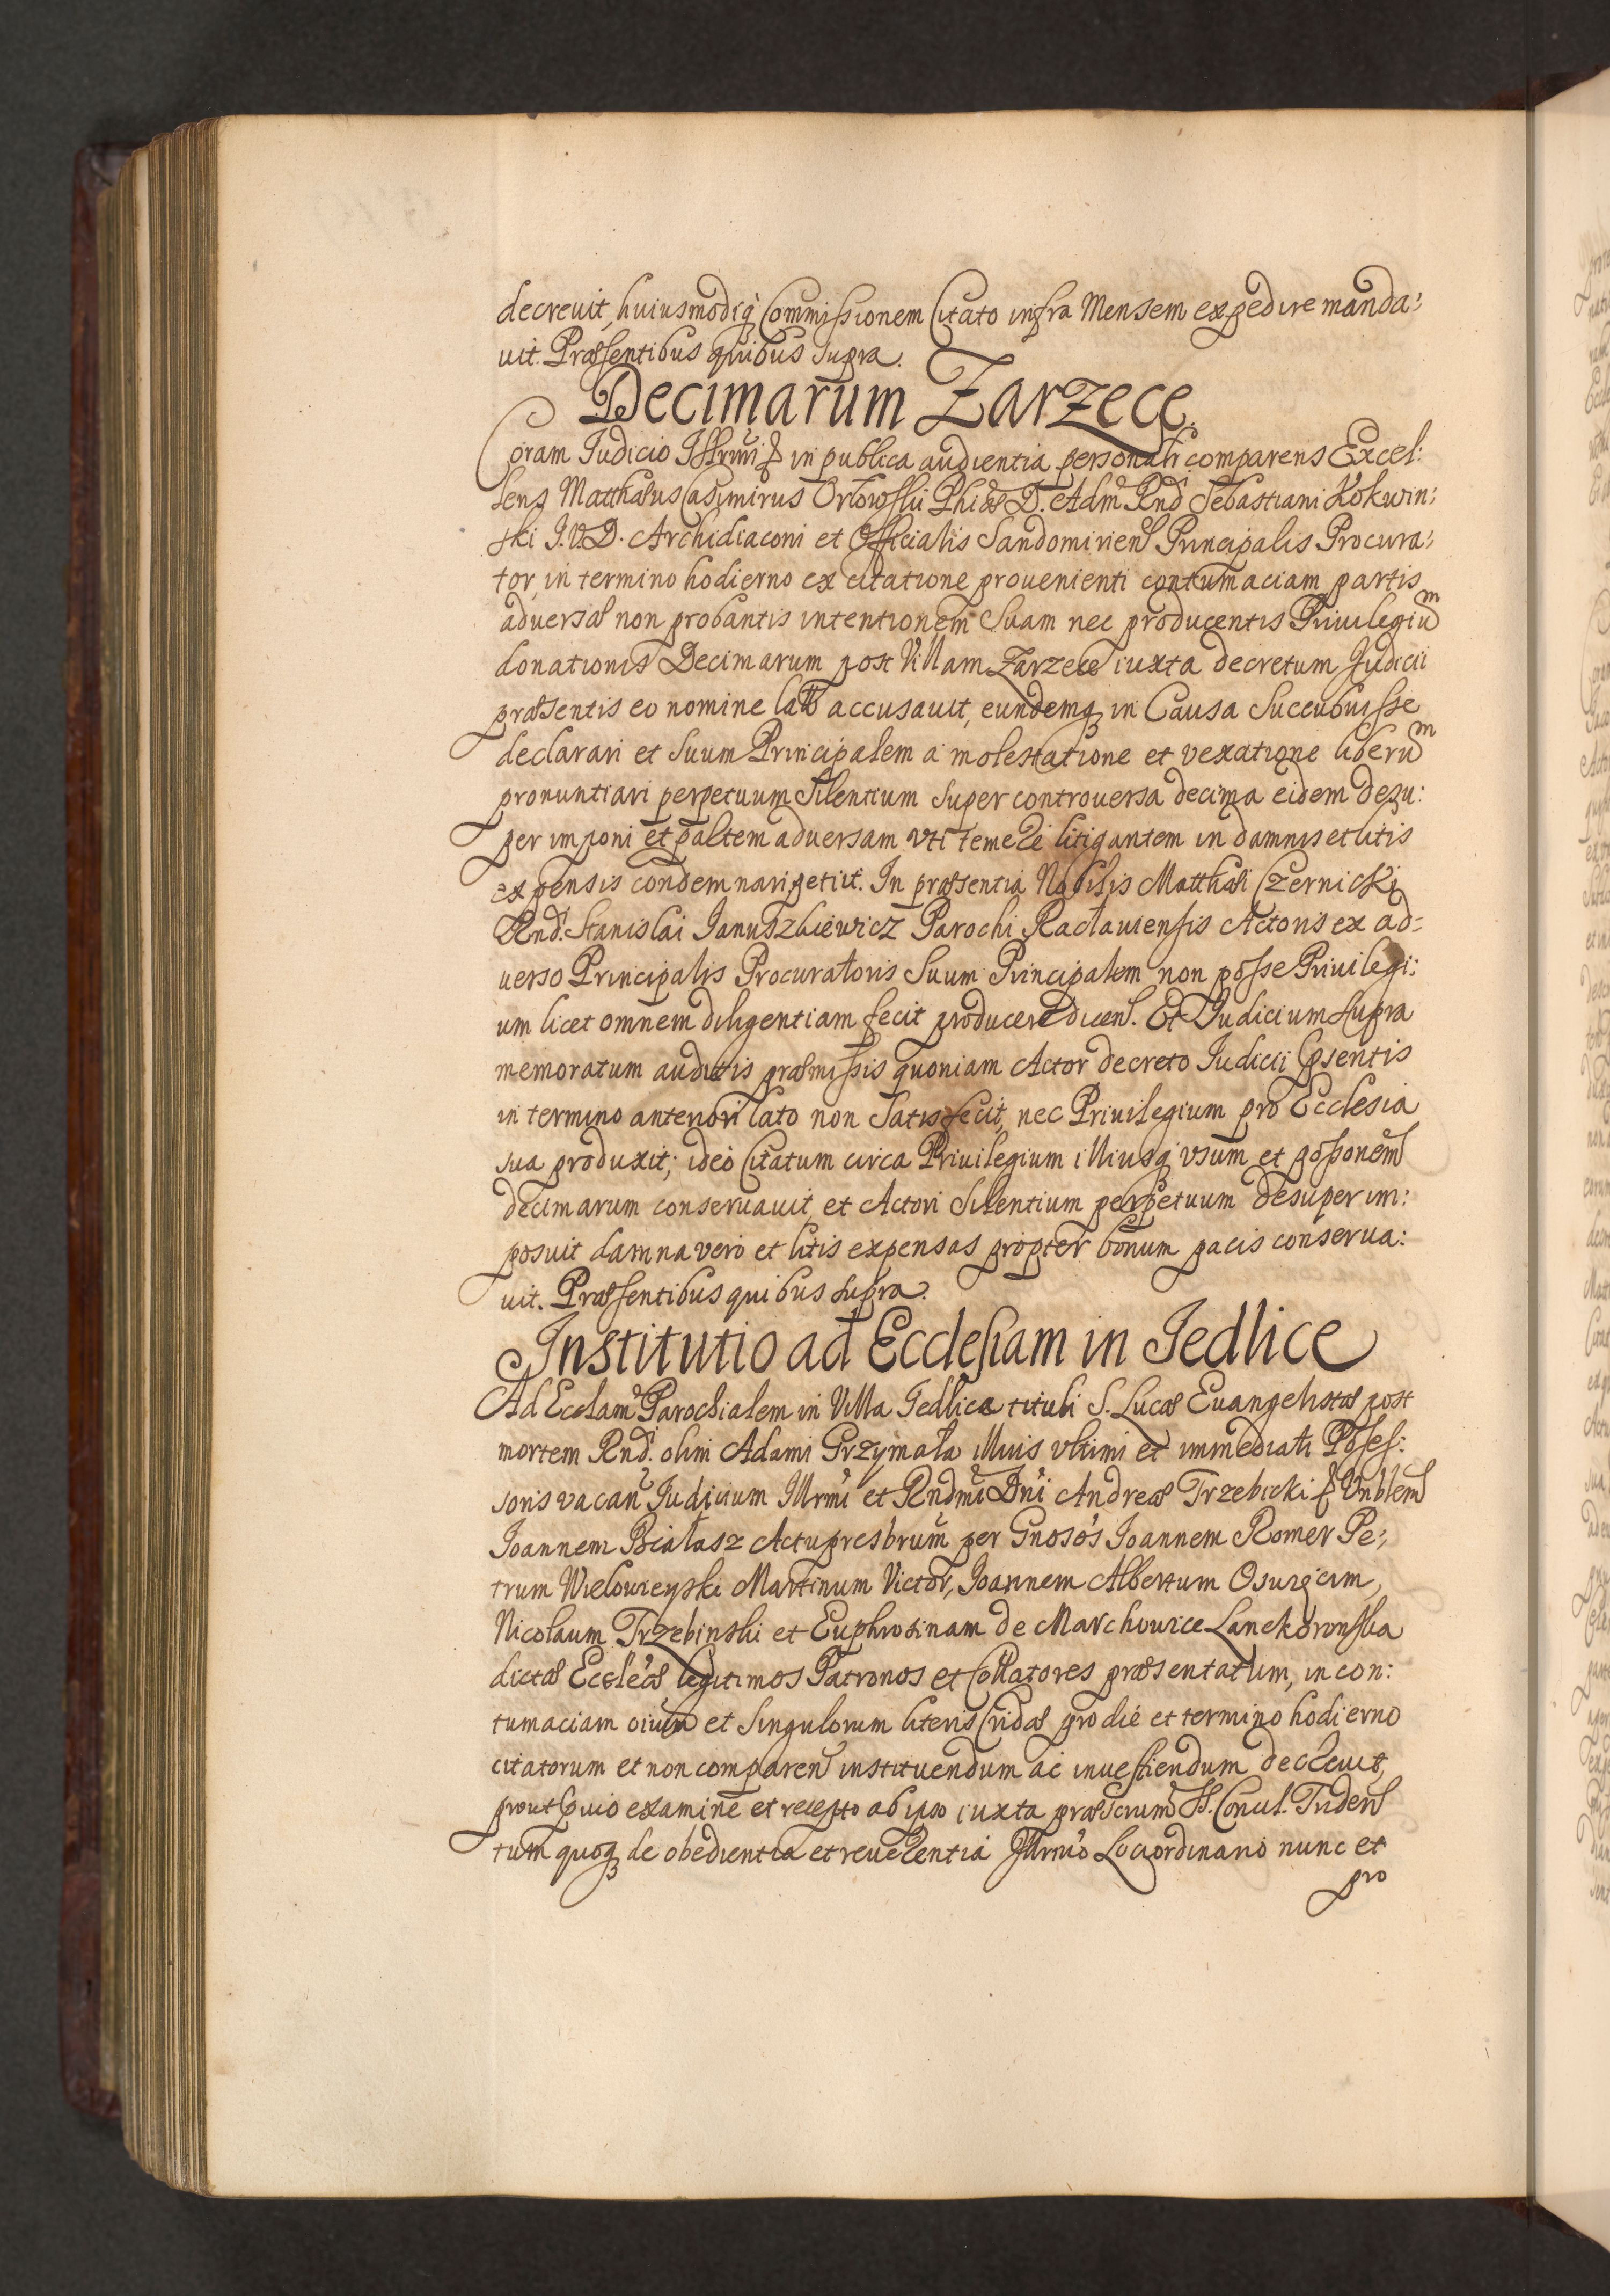 decreuit, huiusmodiq̃ Commissionem Citato infra Mensem expedire manda:
uit. Præsentibus quibus supra.
Decimarum Zarzece.
Coram Judicio Illrmi & in publica audientia personali comparens Excel:
lens Matthæus Casimirus Orłowski Phiæ D. Adm Rnd Sebastiani Kokwin:
ski J.V.D. Archidiaconi et Officialis Sandomirien Principalis Procura:
tor, in termino hodierno ex citatione prouenienti contumaciam partis
aduersæ non probantis intentionem Suam nec producentis Priuilegium
donationis Decimarum post Villam Zarzece iuxta decretum Judicii
præsentis eo nomine lato accusauit, eundemq in Causa Succubuisse
declarari et Suum Principalem a molestatione et vexatione liberum
pronuntiari perpetuum Silentium Super controuersa decima eidem desu:
per imponi et paltem aduersam vti temere litigantem in damnis et litis
expensis condemnari petiit. In præsentia Nobilis Matthæi Czernicki
Rnd. Stanislai Januszkiewicz Parochi Racłauiensis Actoris ex ad=
uerso Principalis Procuratoris Suum Principalem non posse Priuilegi:
um licet omnem diligentiam fecit producere dicen. Et Judicium supra
memoratum auditis præmissis quoniam Actor decreto Judicii Psentis
in termino anteriori lato non Satisfecit, nec Priuilegium pro Ecclesia
sua produxit; ideo Citatum circa Priuilegium illiusq vsum et possonem
decimarum conseruauit, et Actori Silentium perpetuum desuper im:
posuit damna vero et litis expensas propter bonum pacis conserua:
uit. Præsentibus quibus supra.
Institutio ad Ecclesiam in Jedlice
Ad Ecclam Parochialem in Villa Jedlice tituli S. Lucæ Euangelistæ post
mortem Rnd. olim Adami Przymała illius vltimi et immediati Posses:
soris vacan Judicium Illrmi et Rndmi Dni Andreæ Trzebicki & Vnblem
Joannem Białasz Actupresbrum per Gnosos Joannem Romer Pe:
trum Wielowieyski Martinum Victor, Joannem Albertum Osuięcim,
Nicolaum Trzebinski et Euphrosinam de Marchowice Lanckoronska
dictæ Eccleæ legitimos Patronos et Collatores præsentatum, in con:
tumaciam oium et Singulorum literis Cridæ pro die et termino hodierno
citatorum et non comparen instituendum ac inuestiendum decreuit,
prout Pvio examine et recepto ab ipso iuxta præscrium SS. Concil. Triden
tum quoq de obedientia et reuerentia Illrmo Lociordinario nunc et
pro